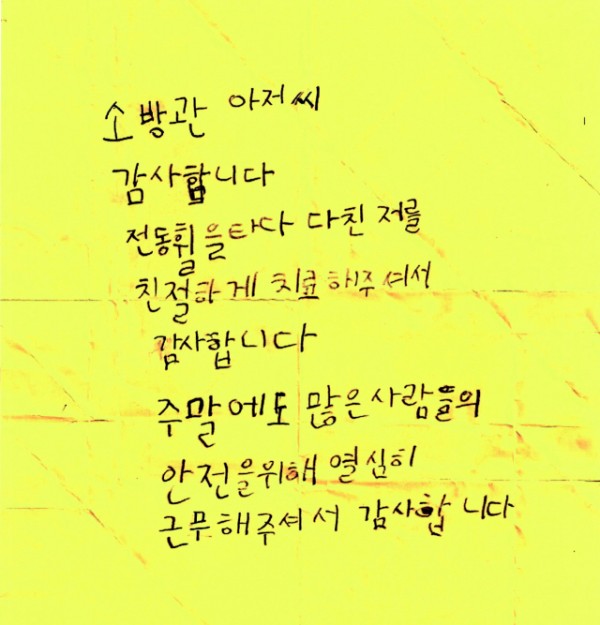 소방관 아저씨
감사합니다
전동휠을타다 다친 저를
친절하게 치료해주셔서
감사합니다
주말에도 많은사람들의
안전을위해 열심히
근무해주셔서 감사합니다